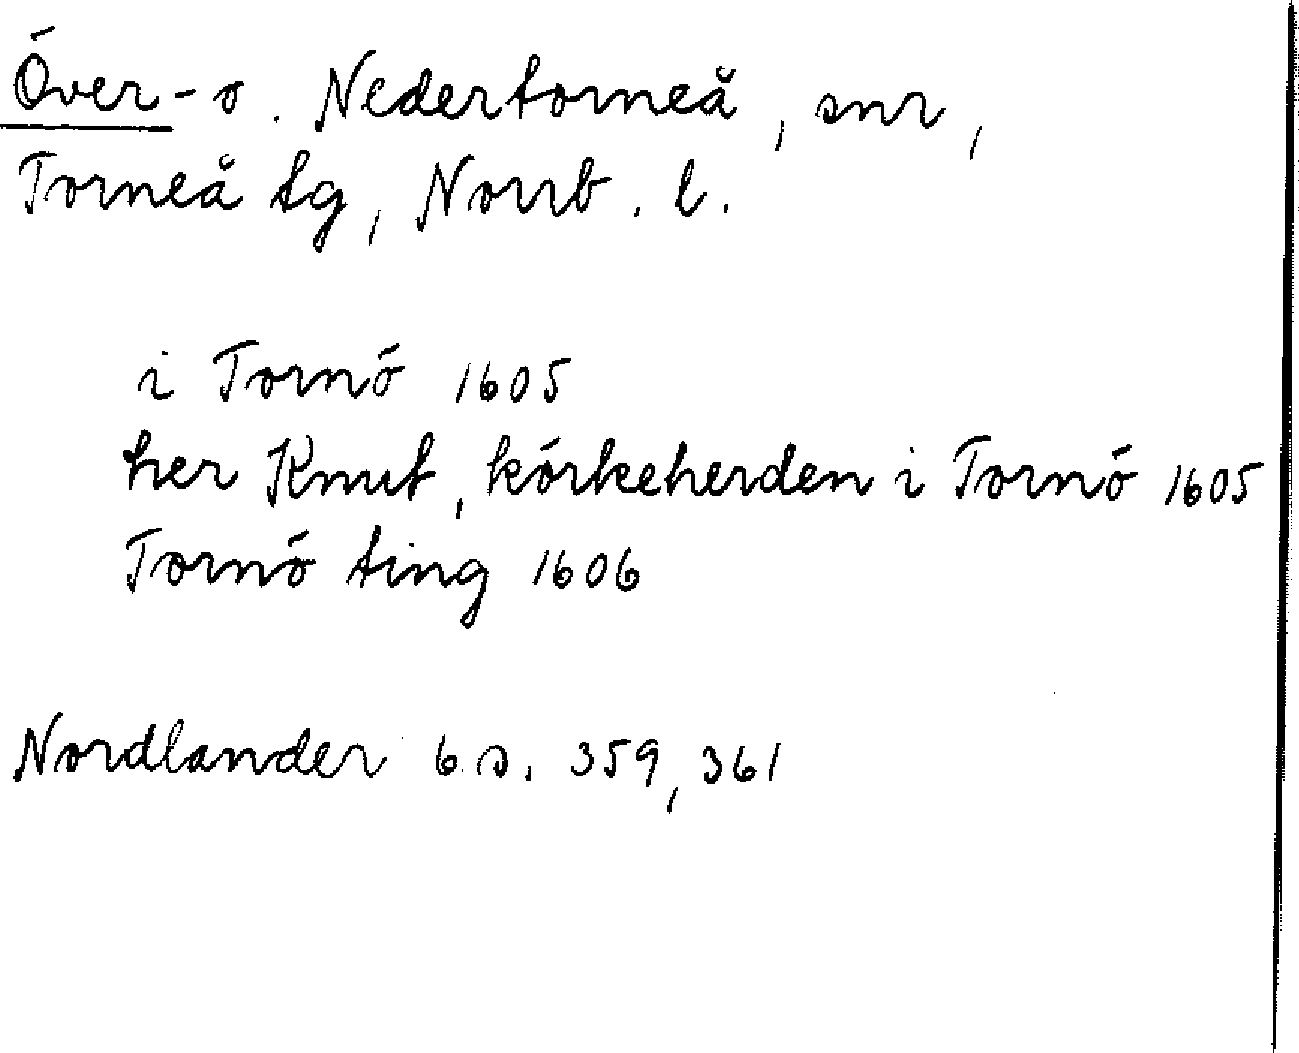 Över- o. Nedertorneå, snr,
Torneå tg, Norrb. l.
i Tornö 1605
her Knut, körkeherden i Tornö 1605
Tornö ting 1606
Nordlander 6 s. 359, 361